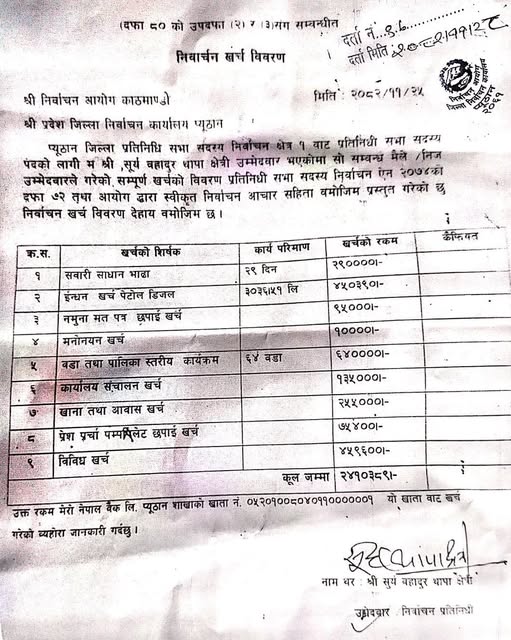 (दफा ८० को उपदफा (२) र (३)संग सम्बन्धीत
दर्ता नं. ९८
दर्ता मिति २०८२।११।२८
निवार्चन खर्च विवरण
निर्वाचन आयोग
जिल्ला निर्वाचन कार्यालय
प्यूठान
मिति : २०८२/११/२५
श्री निर्वाचन आयोग काठमाण्डौ
श्री प्रदेश जिल्ला निर्वाचन कार्यालय प्यूठान
प्यूठान जिल्ला प्रतिनिधि सभा सदस्य निर्वाचन क्षेत्र १ वाट प्रतिनिधी सभा सदस्य
पदको लागी म श्री सूर्य वहादुर थापा क्षेत्री उम्मेदवार भएकोमा सो सम्बन्ध मैले /निज
उम्मेदवारले गरेको सम्पूर्ण खर्चको विवरण प्रतिनिधी सभा सदस्य निर्वाचन ऐन २०७४को
दफा ७२ तथा आयोग द्वारा स्वीकृत निर्वाचन आचार सहिता वमोजिम प्रस्तुत गरेको छु
निर्वाचन खर्च विवरण देहाय वमोजिम छ ।
क्र.स. खर्चको शिर्षक कार्य परिमाण खर्चको रकम कैफियत
१ सवारी साधान भाढा २९ दिन २९००००।-
२ इन्धन खर्च पेटोल डिजल ३०३६।५१ लि ४५०३९०।-
३ नमुना मत पत्र छपाई खर्च ९५०००।-
४ मनोनयन खर्च १००००।-
५ वडा तथा पालिका स्तरीय कार्यक्रम ६४ वडा ६४००००।-
६ कार्यालय संचालन खर्च १३५०००।-
७ खाना तथा आवास खर्च २५५०००।-
८ प्रेश पर्चा पम्प्लेट छपाई खर्च ७५४००।-
९ विविध खर्च ४५९६००।-
कूल जम्मा २४१०३८९।-
उक्त रकम मेरो नेपाल वैक लि. प्यूठान शाखाको खाता नं. ०५२०१००८०४०११००००००१ यो खाता वाट खर्च
गरेको व्यहोरा जानकारी गर्दछु ।
नाम थर : श्री सुर्य वहादुर थापा क्षेत्री
उम्मेदवार निर्वाचन प्रतिनिधी